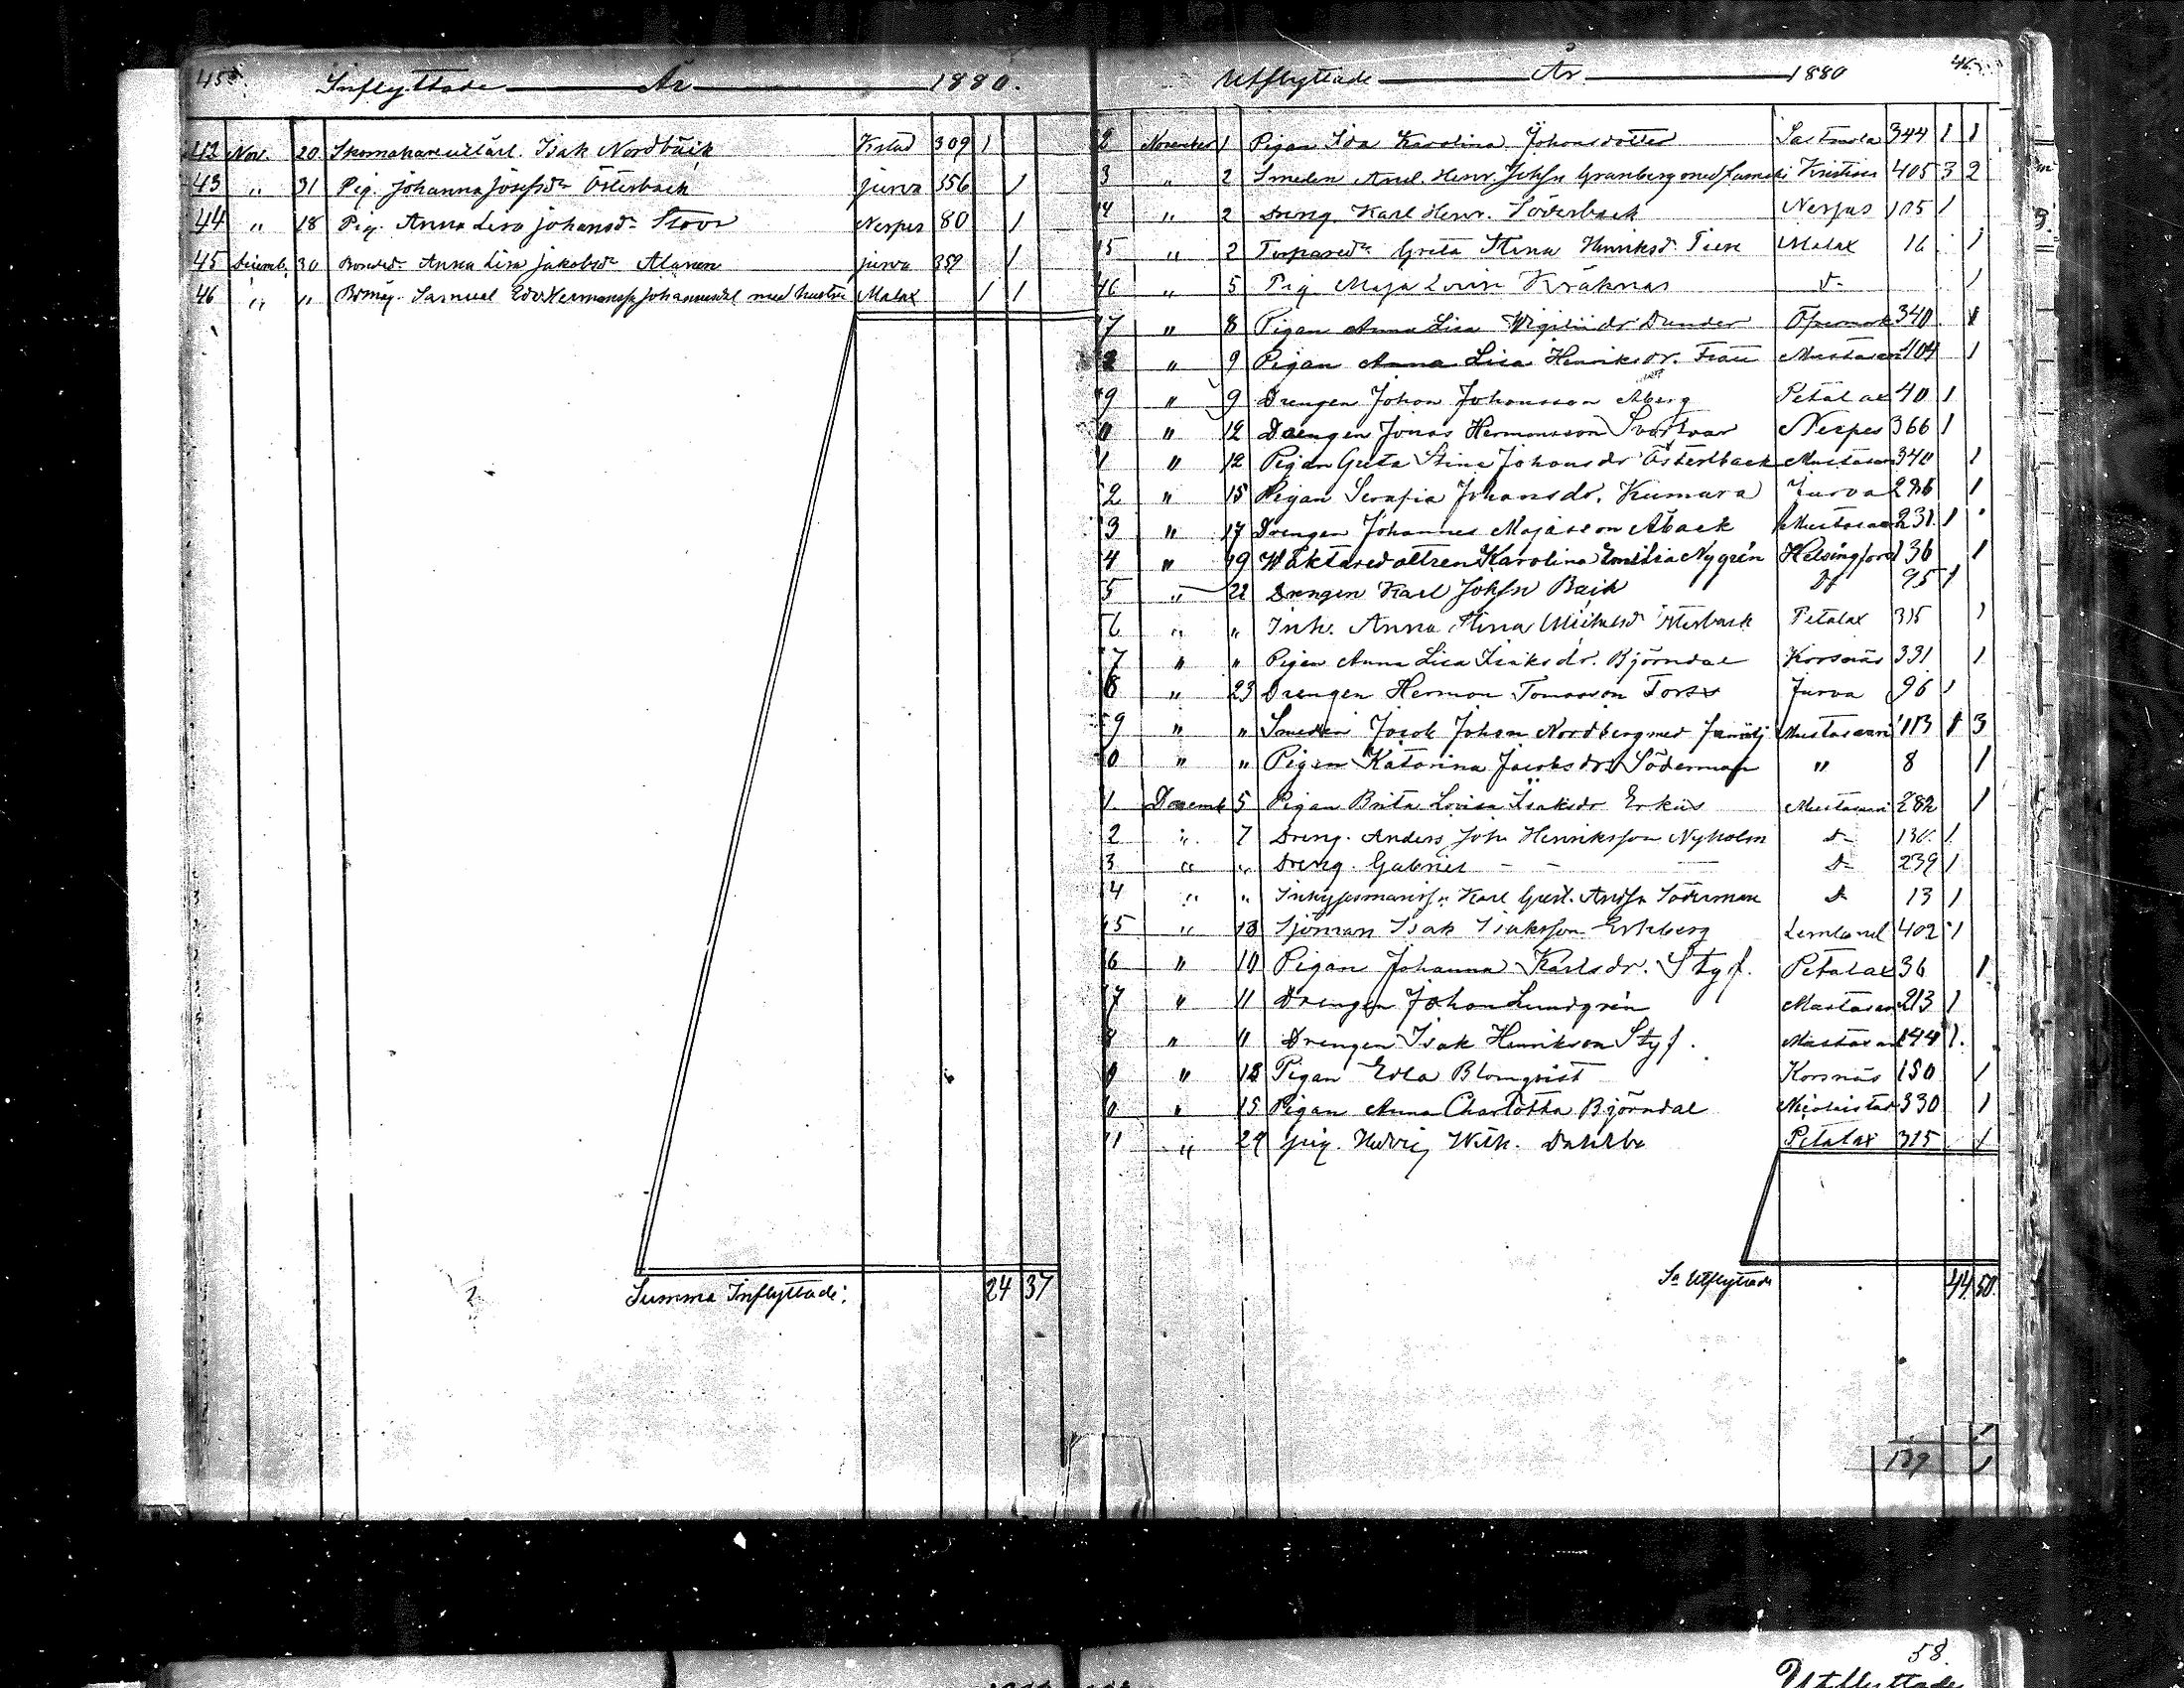 45
Inflyttade År 1880.
42 Nov. 20 Isak Nordbäck Kstad 309 1
43 " 31 Pig. Johanna Josefsdr Österback Jurva 356 1
44 " 18 Pig. Anna Lisa Johansdr Stoor Nerpes 80 1
45 Decemb. 30 Bonded. Anna Lisa Jakobsdr Alanen Jurva 359 1
46 " " Samuel Edv. Hermansson Johannesdal med hustru Malax 1 1
Summa Inflyttade: 24 37
46
Utflyttade År 1880
2 November 1 Pigan Ida Karolina Johansdotter Sastmola 344 1
3 " 2 Smeden And. Henr. Johsn Granberg med familj Kristines 405 3 2
4 " 2 Dreng Karl Henr. Söderback Nerpes 105 1
5 " 2 Greta Stina Henriksd. Malax 16 1
6 " 5 Pig Maja Lovisa Kråknäs d- 1
7 " 8 Pigan Anna Lisa Dunder Öfvermark 340 1
8 " 9 Pigan Anna Lisa Henriksdr. Mustasaari 404 1
9 " 9 Drengen Johan Johansson Åberg Petalax 40 1
0 " 12 Drengen Jonas Hermansson Svartvar Nerpes 366 1
1 " 12 Pigan Greta Stina Johansdr Österback Mustasaari 340 1
2 " 15 Pigan Serafia Johansdr. Kumara Jurva 286 1
3 " 17 Drengen Johannes Majasson Åback Mustasaari 231 1
4 " 19 Waktaredottren Karolina Emilia Nygrén Helsingfors 136 1
5 " 22 Drengen Karl Johsn Bäck D 95 1
6 " " Inh. Anna Stina Österback Petalax 315 1
7 " " Pigan Anna Lisa Isaksdr. Björndal Korsnäs 331 1
8 " 23 Drengen Herman Tomasson Forss Jurva 96 1
9 " " Smeden Jacob Johan Nordberg med familj Mustasaari 113 1 3
0 " " Pigan Katarina Jacobsdr Söderman " 8 1
1 Decemb 5 Pigan Brita Lovisa Isaksdr Erkus Mustasaari 282 1
2 " 7 Dreng. Anders Joh. Henriksson Nyholm d- 1
3 " " Dreng. Gabriel - - d- 239 1
4 " " Karl Gust. Andsn Söderman d- 13 1
5 " 13 Sjöman Isak Isaksson Erkberg Lemland 402 1
6 " 10 Pigan Johanna Karlsdr. Styf. Petalax 36 1
7 " 11 Drengen Johan Lundgrén Mustasaari 213 1
8 " 11 Drengen Isak Henrikson Styf. Mustasaari 144 1.
9 " 13 Pigan Edla Blomqvist Korsnäs 150 1
0 " 15 Pigan Anna Charlotta Björndal Nicolaistad 330 1
1 " 29 Pig. Hedvig Wilh. Petalax 315 1
Sa Utflyttade 44 50.
139
58.
Utflyttade